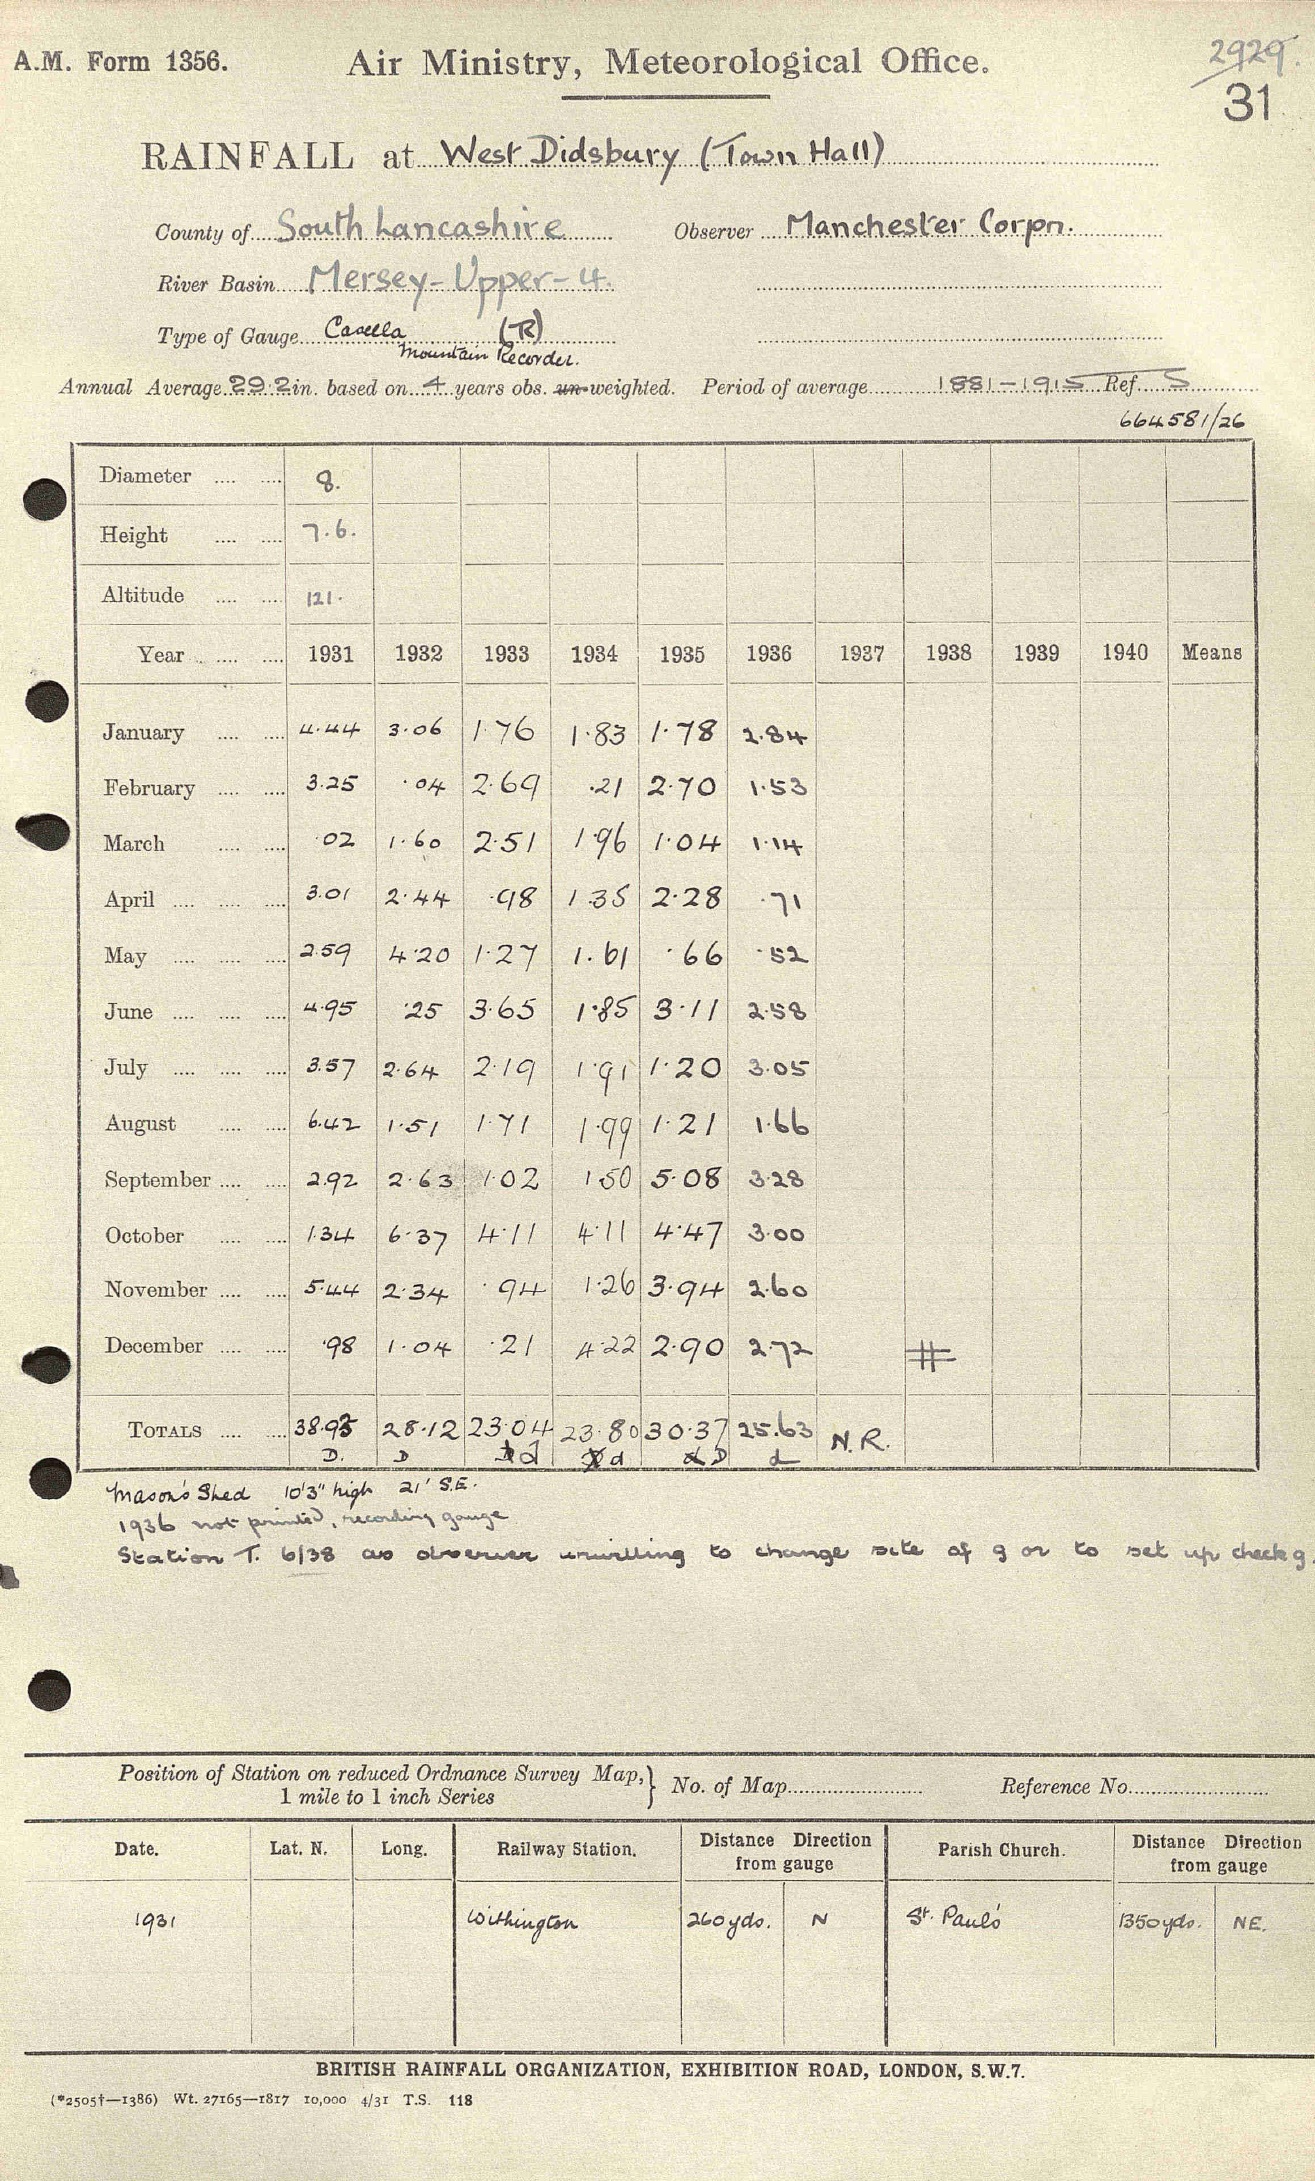 A.M. Form 1356. Air Ministry, Meteorological Office. 2929.
31
RAINFALL at West Didsbury (Town Hall)
County of South Lancashire Observer Manchester Corpn.
River Basin Mersey-Upper-4.
Type of Gauge Casella (R)
Mountain Recorder.
Annual Average 29.2 in. based on 4 years obs. un-weighted. Period of average 1881-1915 Ref. S
664581/26
Diameter 8.
Height 7.6.
Altitude 121.
Year 1931 1932 1933 1934 1935 1936 1937 1938 1939 1940 Means
January 4.44 3.06 1.76 1.83 1.78 2.84
February 3.25 .04 2.69 .21 2.70 1.53
March .02 1.60 2.51 1.96 1.04 1.14
April 3.01 2.44 .98 1.35 2.28 .71
May 2.59 4.20 1.27 1.61 .66 .52
June 4.95 .25 3.65 1.85 3.11 2.58
July 3.57 2.64 2.19 1.91 1.20 3.05
August 6.42 1.51 1.71 1.99 1.21 1.66
September 2.92 2.63 1.02 1.50 5.08 3.28
October 1.34 6.37 4.11 4.11 4.47 3.00
November 5.44 2.34 .94 1.26 3.94 2.60
December .98 1.04 .21 4.22 2.90 2.72
TOTALS 38.93 28.12 23.04 23.80 30.37 25.63 N.R.
D. D d d D d
Mason's Shed 10'3" high 21' S.E.
1936 not printed, recording gauge
Station T. 6/38 as observer unwilling to change site of g or to set up check g.
Position of Station on reduced Ordnance Survey Map,
1 mile to 1 inch Series
No. of Map Reference No.
Date. Lat. N. Long. Railway Station. Distance Direction from gauge Parish Church. Distance Direction from gauge
1931 Withington 260 yds. N St. Paul's 1350 yds. NE.
BRITISH RAINFALL ORGANIZATION, EXHIBITION ROAD, LONDON, S.W.7.
(*2505†—1386) Wt. 27165—1817 10,000 4/31 T.S. 118